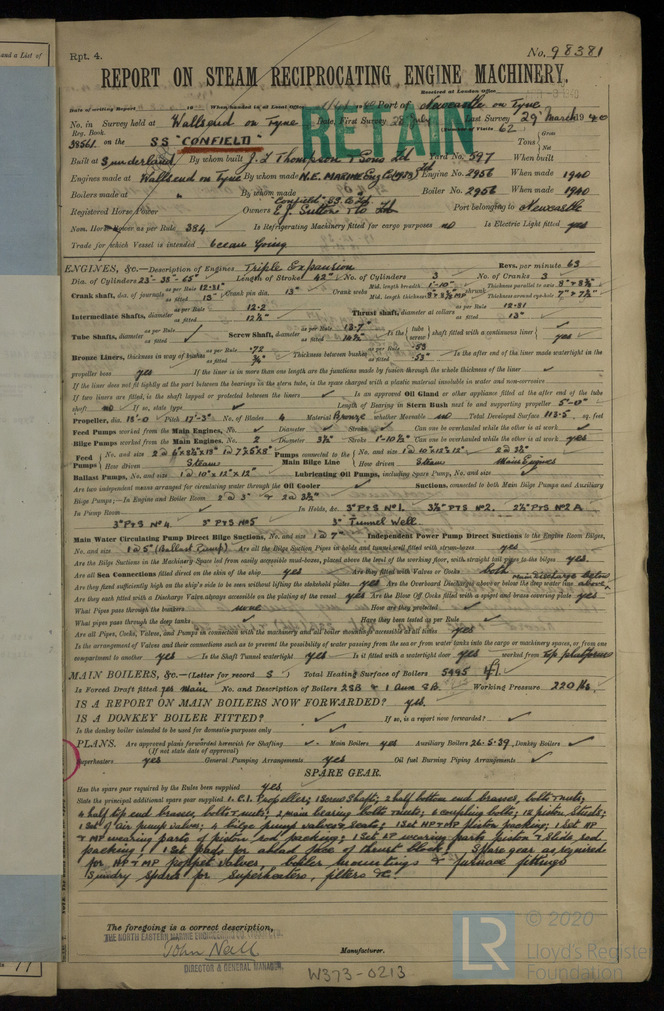 and a List of
Rpt. 4.
No. 98381
REPORT ON STEAM RECIPROCATING ENGINE MACHINERY.
Received at London Office
RETAIN
Date of writing Report 19 When handed in at Local Office 19 40 Port of Newcastle on Tyne
No. in Survey held at Wallsend on Tyne Date, First Survey Last Survey 29 March 1940
Reg. Book. (Number of Visits 62)
38561 on the SS "CONFIELD" Tons Gross Net
Built at Sunderland By whom built J. L. Thompson & Sons Ld Yard No. 597 When built
Engines made at Wallsend on Tyne By whom made N.E. MARINE Eng Co (1938) Ld Engine No. 2956 When made 1940
Boilers made at " By whom made " Boiler No. 2956 When made 1940
Registered Horse Power Owners Confield SS Co Ld E. J. Sutton & Co Ld Port belonging to Newcastle
Nom. Horse Power as per Rule 384 Is Refrigerating Machinery fitted for cargo purposes no Is Electric Light fitted yes
Trade for which Vessel is intended Ocean Going
ENGINES, &c.—Description of Engines Triple Expansion Revs. per minute 63
Dia. of Cylinders 23"-38"-65" Length of Stroke 42" No. of Cylinders 3 No. of Cranks 3
Crank shaft, dia. of journals as per Rule 12.81" as fitted 13" Crank pin dia. 13" Crank webs Mid. length breadth 1'-10" Mid. length thickness shrunk Thickness parallel to axis Thickness around eye-hole
Intermediate Shafts, diameter as per Rule 12.2 as fitted 12½" Thrust shaft, diameter at collars as per Rule 12.81 as fitted 13"
Tube Shafts, diameter as per Rule as fitted Screw Shaft, diameter as per Rule 13.7" as fitted 14¾" Is the tube screw shaft fitted with a continuous liner yes
Bronze Liners, thickness in way of bushes as per Rule .72 as fitted ¾" Thickness between bushes as per Rule .53 as fitted .53" Is the after end of the liner made watertight in the
propeller boss yes If the liner is in more than one length are the junctions made by fusion through the whole thickness of the liner ✓
If the liner does not fit tightly at the part between the bearings in the stern tube, is the space charged with a plastic material insoluble in water and non-corrosive
If two liners are fitted, is the shaft lapped or protected between the liners ✓ Is an approved Oil Gland or other appliance fitted at the after end of the tube
shaft no If so, state type ✓ Length of Bearing in Stern Bush next to and supporting propeller 5'-0"
Propeller, dia. 18'-0 Pitch 17'-3" No. of Blades 4 Material Bronze whether Moveable no Total Developed Surface 113.5 sq. feet
Feed Pumps worked from the Main Engines, No. ✓ Diameter ✓ Stroke ✓ Can one be overhauled while the other is at work ✓
Bilge Pumps worked from the Main Engines, No. 2 Diameter 3½" Stroke 1'-10½" Can one be overhauled while the other is at work yes
Feed Pumps No. and size How driven Steam Pumps connected to the Main Bilge Line No. and size 1 @ 10"x12"x12" 2 @ 3½" How driven Steam Main Engines
Ballast Pumps, No. and size 1 @ 10"x12"x12" Lubricating Oil Pumps, including Spare Pump, No. and size ✓
Are two independent means arranged for circulating water through the Oil Cooler ✓ Suctions, connected to both Main Bilge Pumps and Auxiliary
Bilge Pumps;—In Engine and Boiler Room 2 @ 3" & 2 @ 3½"
In Pump Room ✓ In Holds, &c. 3" P&S No1. 3½" P&S No2. 2½" P&S No2A
3" P&S No4. 3" P&S No5 3" Tunnel Well
Main Water Circulating Pump Direct Bilge Suctions, No. and size 1 @ 7" Independent Power Pump Direct Suctions to the Engine Room Bilges,
No. and size 1 @ 5" (Ballast Pump) Are all the Bilge Suction Pipes in holds and tunnel well fitted with strum-boxes yes
Are the Bilge Suctions in the Machinery Space led from easily accessible mud-boxes, placed above the level of the working floor, with straight tail pipes to the bilges yes.
Are all Sea Connections fitted direct on the skin of the ship yes Are they fitted with Valves or Cocks both
Are they fixed sufficiently high on the ship's side to be seen without lifting the stokehold plates yes Are the Overboard Discharges above or below the deep water line Main discharge below above
Are they each fitted with a Discharge Valve always accessible on the plating of the vessel yes Are the Blow Off Cocks fitted with a spigot and brass covering plate yes
What Pipes pass through the bunkers none How are they protected ✓
What pipes pass through the deep tanks ✓ Have they been tested as per Rule ✓
Are all Pipes, Cocks, Valves, and Pumps in connection with the machinery and all boiler mountings accessible at all times yes
Is the arrangement of Valves and their connections such as to prevent the possibility of water passing from the sea or from water tanks into the cargo or machinery spaces, or from one
compartment to another yes Is the Shaft Tunnel watertight yes Is it fitted with a watertight door yes worked from Top platform
MAIN BOILERS, &c.—(Letter for record S) Total Heating Surface of Boilers 5495
Is Forced Draft fitted yes main No. and Description of Boilers 2 SB & 1 Aux S.B. Working Pressure 220 lbs.
IS A REPORT ON MAIN BOILERS NOW FORWARDED? yes.
IS A DONKEY BOILER FITTED? ✓ If so, is a report now forwarded? ✓
Is the donkey boiler intended to be used for domestic purposes only ✓
PLANS. Are approved plans forwarded herewith for Shafting ✓ Main Boilers yes Auxiliary Boilers 26.5.39 Donkey Boilers ✓
(If not state date of approval)
Superheaters yes General Pumping Arrangements yes Oil fuel Burning Piping Arrangements ✓
SPARE GEAR.
Has the spare gear required by the Rules been supplied yes.
State the principal additional spare gear supplied 1 C.I. Propeller; 1 Screw Shaft; 2 half bottom end brasses, bolts & nuts;
4 half top end brasses, bolts & nuts; 2 main bearing bolts & nuts; 6 coupling bolts; 12 piston studs;
1 set of air pump valves; 4 bilge pump valves & seats; 1 set HP & MP piston packing; 1 set HP
& MP wearing parts of piston rod packing; 1 set LP wearing parts piston & slide rod
packing; 1 set pads for ahead face of thrust block; Spare gear as required
for HP & MP poppet valves, boiler mountings & furnace fittings
Sundry spares for Superheaters, filters &c.
The foregoing is a correct description,
THE NORTH EASTERN MARINE ENGINEERING CO. (1938) LTD.
John Neill
DIRECTOR & GENERAL MANAGER.
Manufacturer.
W373-0213
LR
© 2020
Lloyd's Register
Foundation